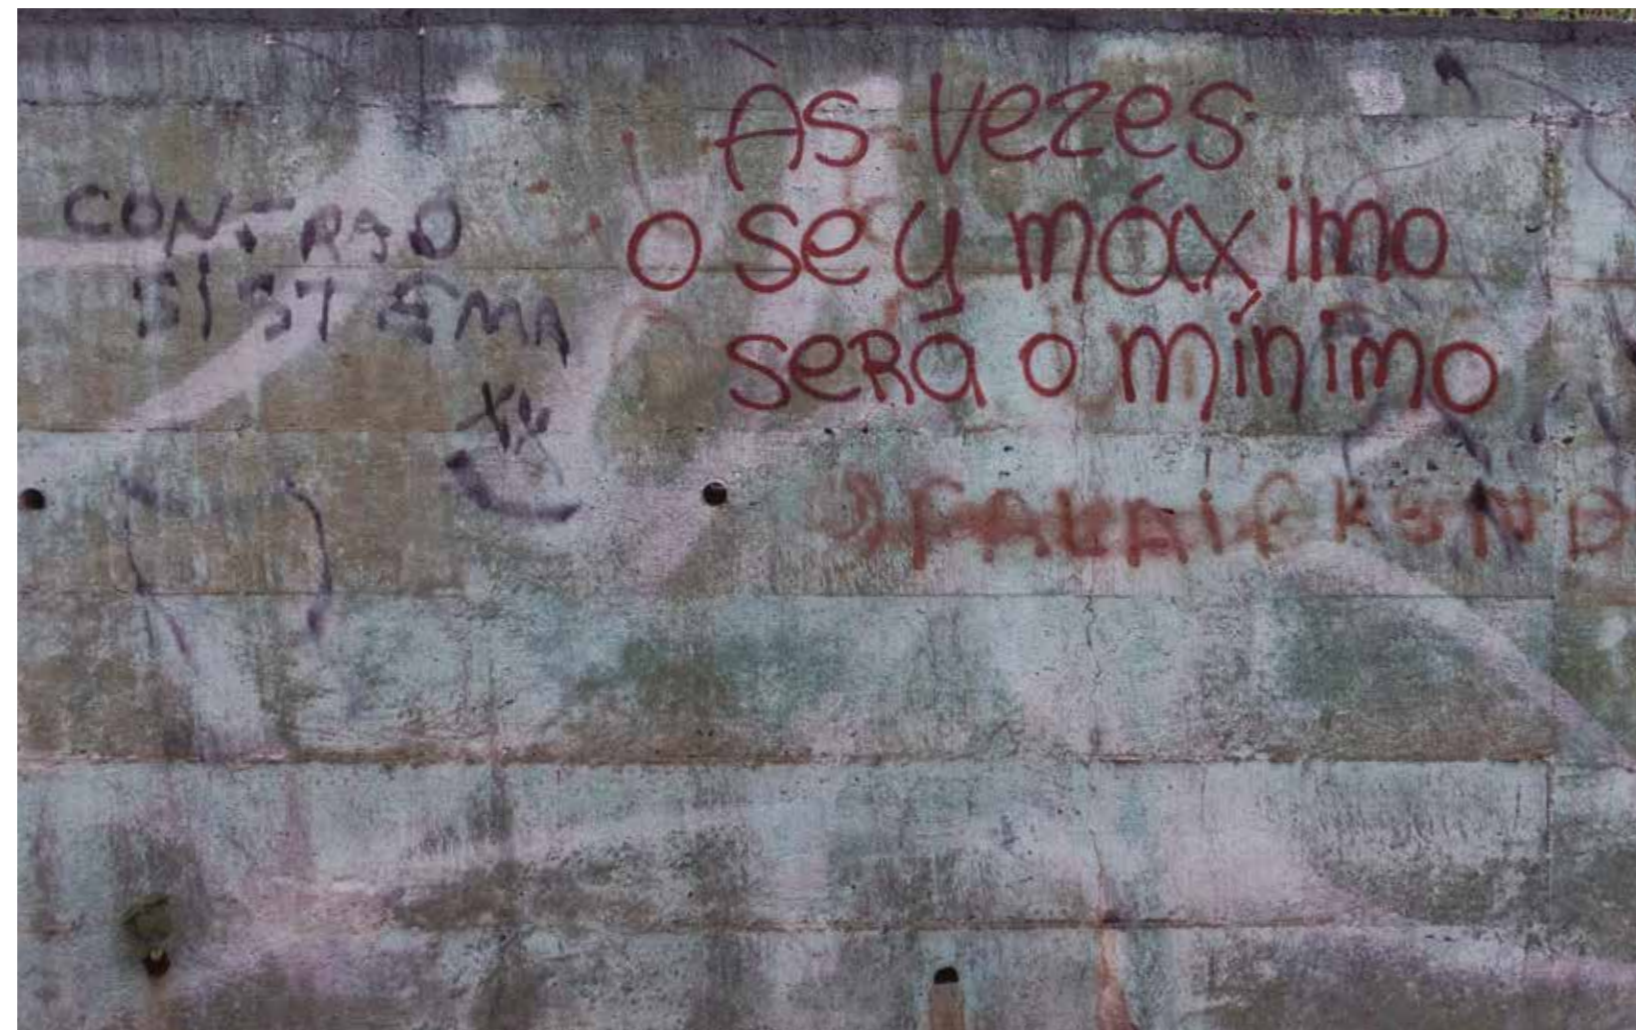 CONTRA O
SISTEMA
Às vezes
o seu máximo
será o mínimo